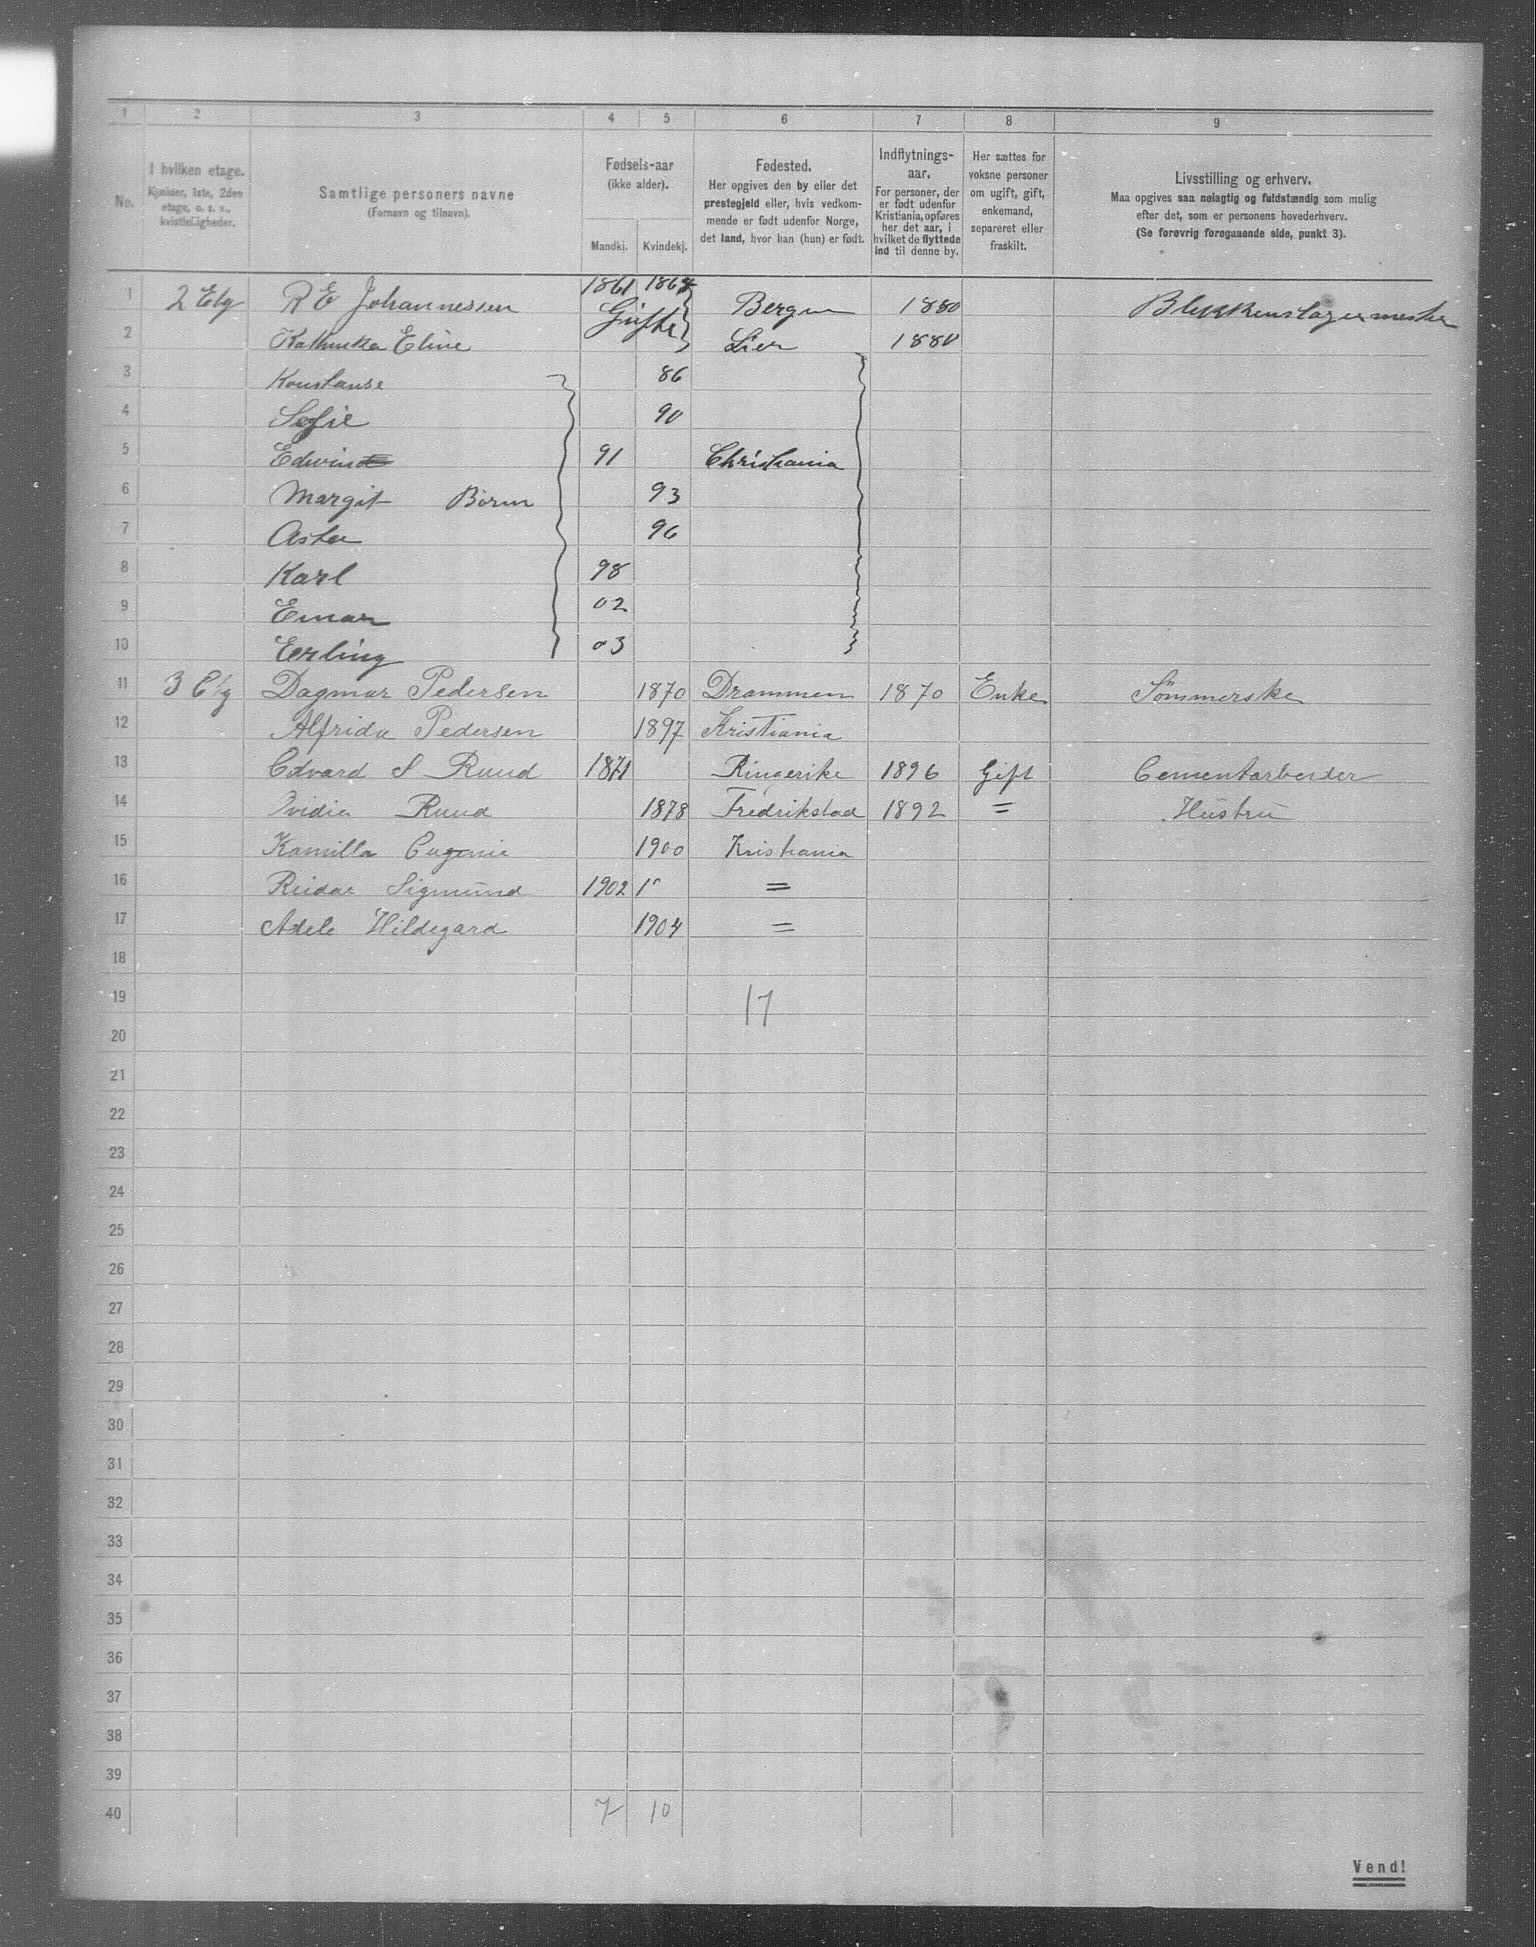 1 2 3 4 5 6 7 8 9
No.
I hvilken etage.
Kjælder, 1ste, 2den
etage, o. s. v.,
kvistleiligheder.
Samtlige personers navne
(Fornavn og tilnavn).
Fødsels-aar
(ikke alder).
Mandkj. Kvindekj.
Fødested.
Her opgives den by eller det
prestegjeld eller, hvis vedkom-
mende er født udenfor Norge,
det land, hvor han (hun) er født.
Indflytnings-
aar.
For personer, der
er født udenfor
Kristiania, opføres
her det aar, i
hvilket de flyttede
ind til denne by.
Her sættes for
voksne personer
om ugift, gift,
enkemand,
separeret eller
fraskilt.
Livsstilling og erhverv.
Maa opgives saa nøiagtig og fuldstændig som mulig
efter det, som er personens hovederhverv.
(Se forøvrig foregaaende side, punkt 3).
1 2 Etg R E Johannessen 1861 186 Gifte Bergen 1880 Blikkenslagermester
2 Eline Lier 1880
3 Konstanse 86
4 Sofie 90
5 Edvin 91 Christiania
6 Margit Børn 93
7 Asta 96
8 Karl 98
9 Einar 02
10 Erling 03
11 3 Etg Dagmar Pedersen 1870 Drammen 1870 Enke Sømmerske
12 Alfrida Pedersen 1897 Kristiania
13 Edvard S Ruud 1871 Ringerike 1896 Gift Cementarbeider
14 Ruud 1878 Fredrikstad 1892 = Hustru
15 Kamilla Eugenie 1900 Kristiania
16 Reidar Sigmund 1902 =
17 Adele Hildegard 1904 =
18
19 17
20
21
22
23
24
25
26
27
28
29
30
31
32
33
34
35
36
37
38
39
40 7 10
Vend!